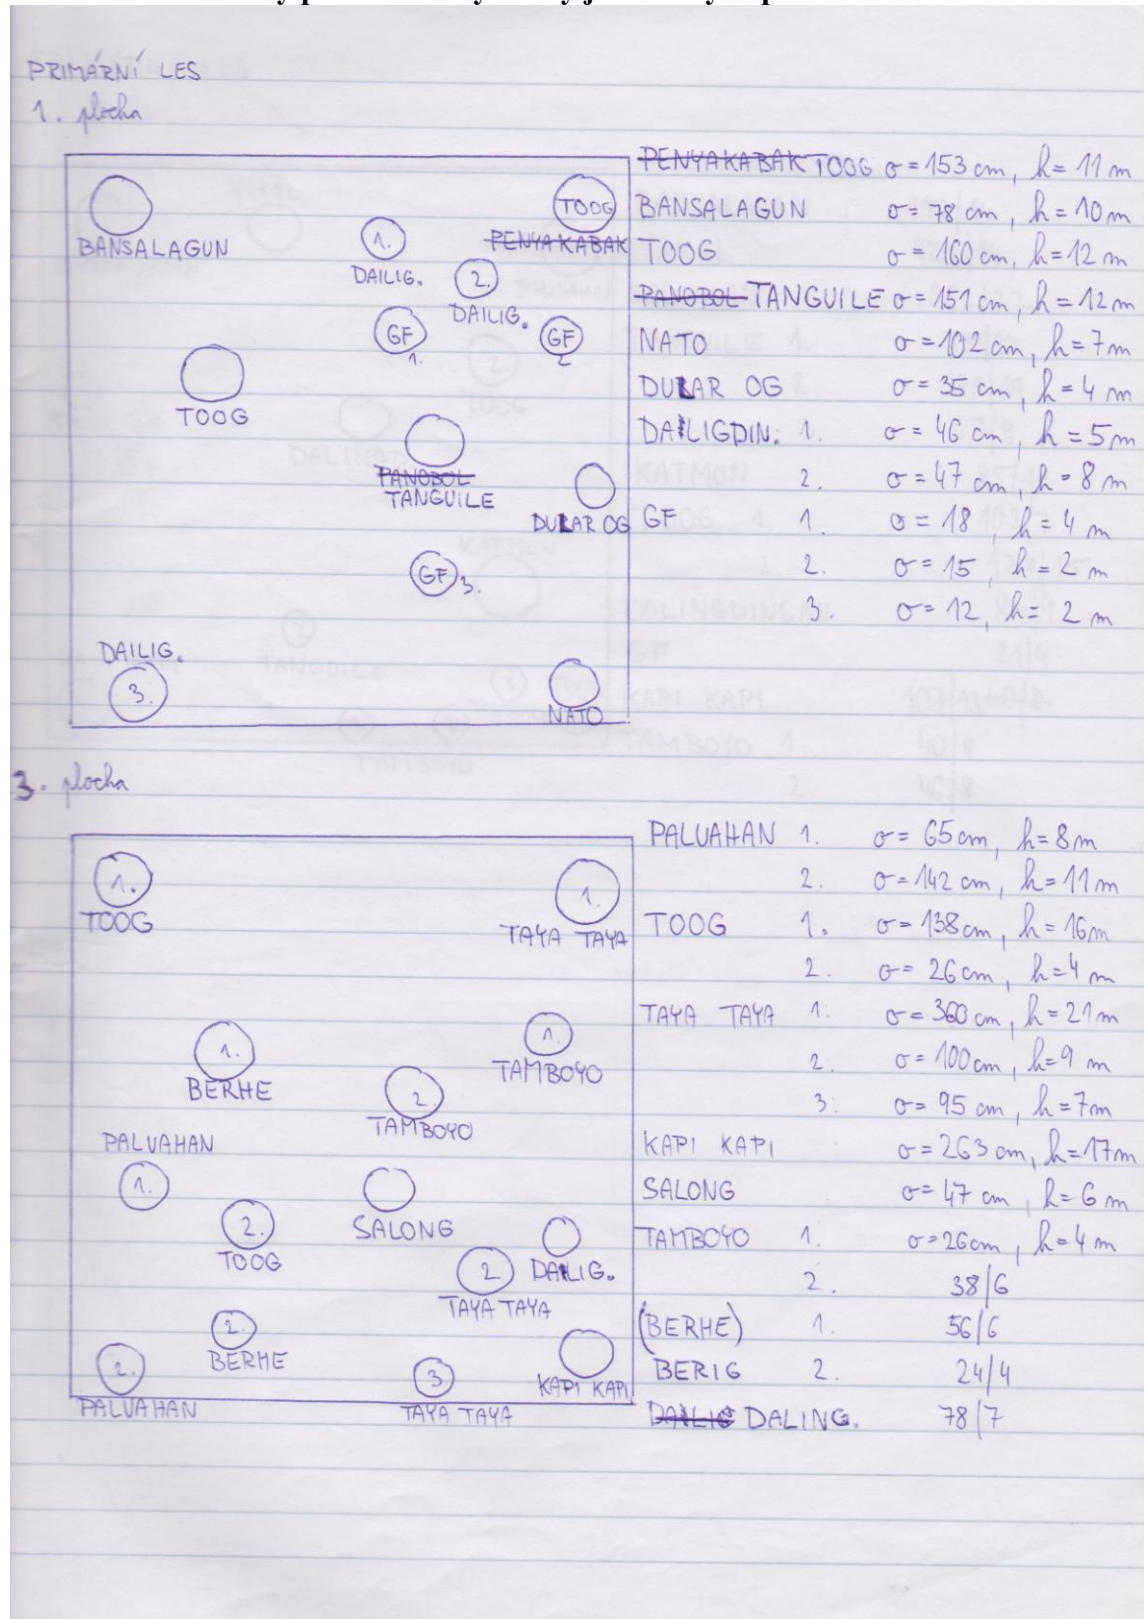 PRIMÁRNÍ LES
1. plocha
BANSALAGUN
TOOG
PENYAKABAK
1.
DAILIG.
2.
DAILIG.
GF
1.
GF
2
TOOG
PANOBOL
TANGUILE
DULAR OG
GF 3.
DAILIG.
3.
NATO
PENYAKABAK TOOG σ = 153 cm, h = 11 m
BANSALAGUN σ = 78 cm, h = 10 m
TOOG σ = 160 cm, h = 12 m
PANOBOL TANGUILE σ = 151 cm, h = 12 m
NATO σ = 102 cm, h = 7 m
DULAR OG σ = 35 cm, h = 4 m
DAILIGDIN. 1. σ = 46 cm, h = 5 m
2. σ = 47 cm, h = 8 m
GF 1. σ = 18, h = 4 m
2. σ = 15, h = 2 m
3. σ = 12, h = 2 m
3. plocha
1.
TOOG
1.
TAYA TAYA
1.
BERHE
1.
TAMBOYO
2
TAMBOYO
PALUAHAN
1.
2.
TOOG
SALONG
DAILIG.
2
TAYA TAYA
2.
BERHE
2.
PALUAHAN
3
TAYA TAYA
KAPI KAPI
PALUAHAN 1. σ = 65 cm, h = 8 m
2. σ = 142 cm, h = 11 m
TOOG 1. σ = 138 cm, h = 16 m
2. σ = 26 cm, h = 4 m
TAYA TAYA 1. σ = 360 cm, h = 21 m
2. σ = 100 cm, h = 9 m
3. σ = 95 cm, h = 7 m
KAPI KAPI σ = 263 cm, h = 17 m
SALONG σ = 47 cm, h = 6 m
TAMBOYO 1. σ = 26 cm, h = 4 m
2. 38/6
(BERHE) 1. 56/6
BERIG 2. 24/4
DAILIG DALING. 78/7